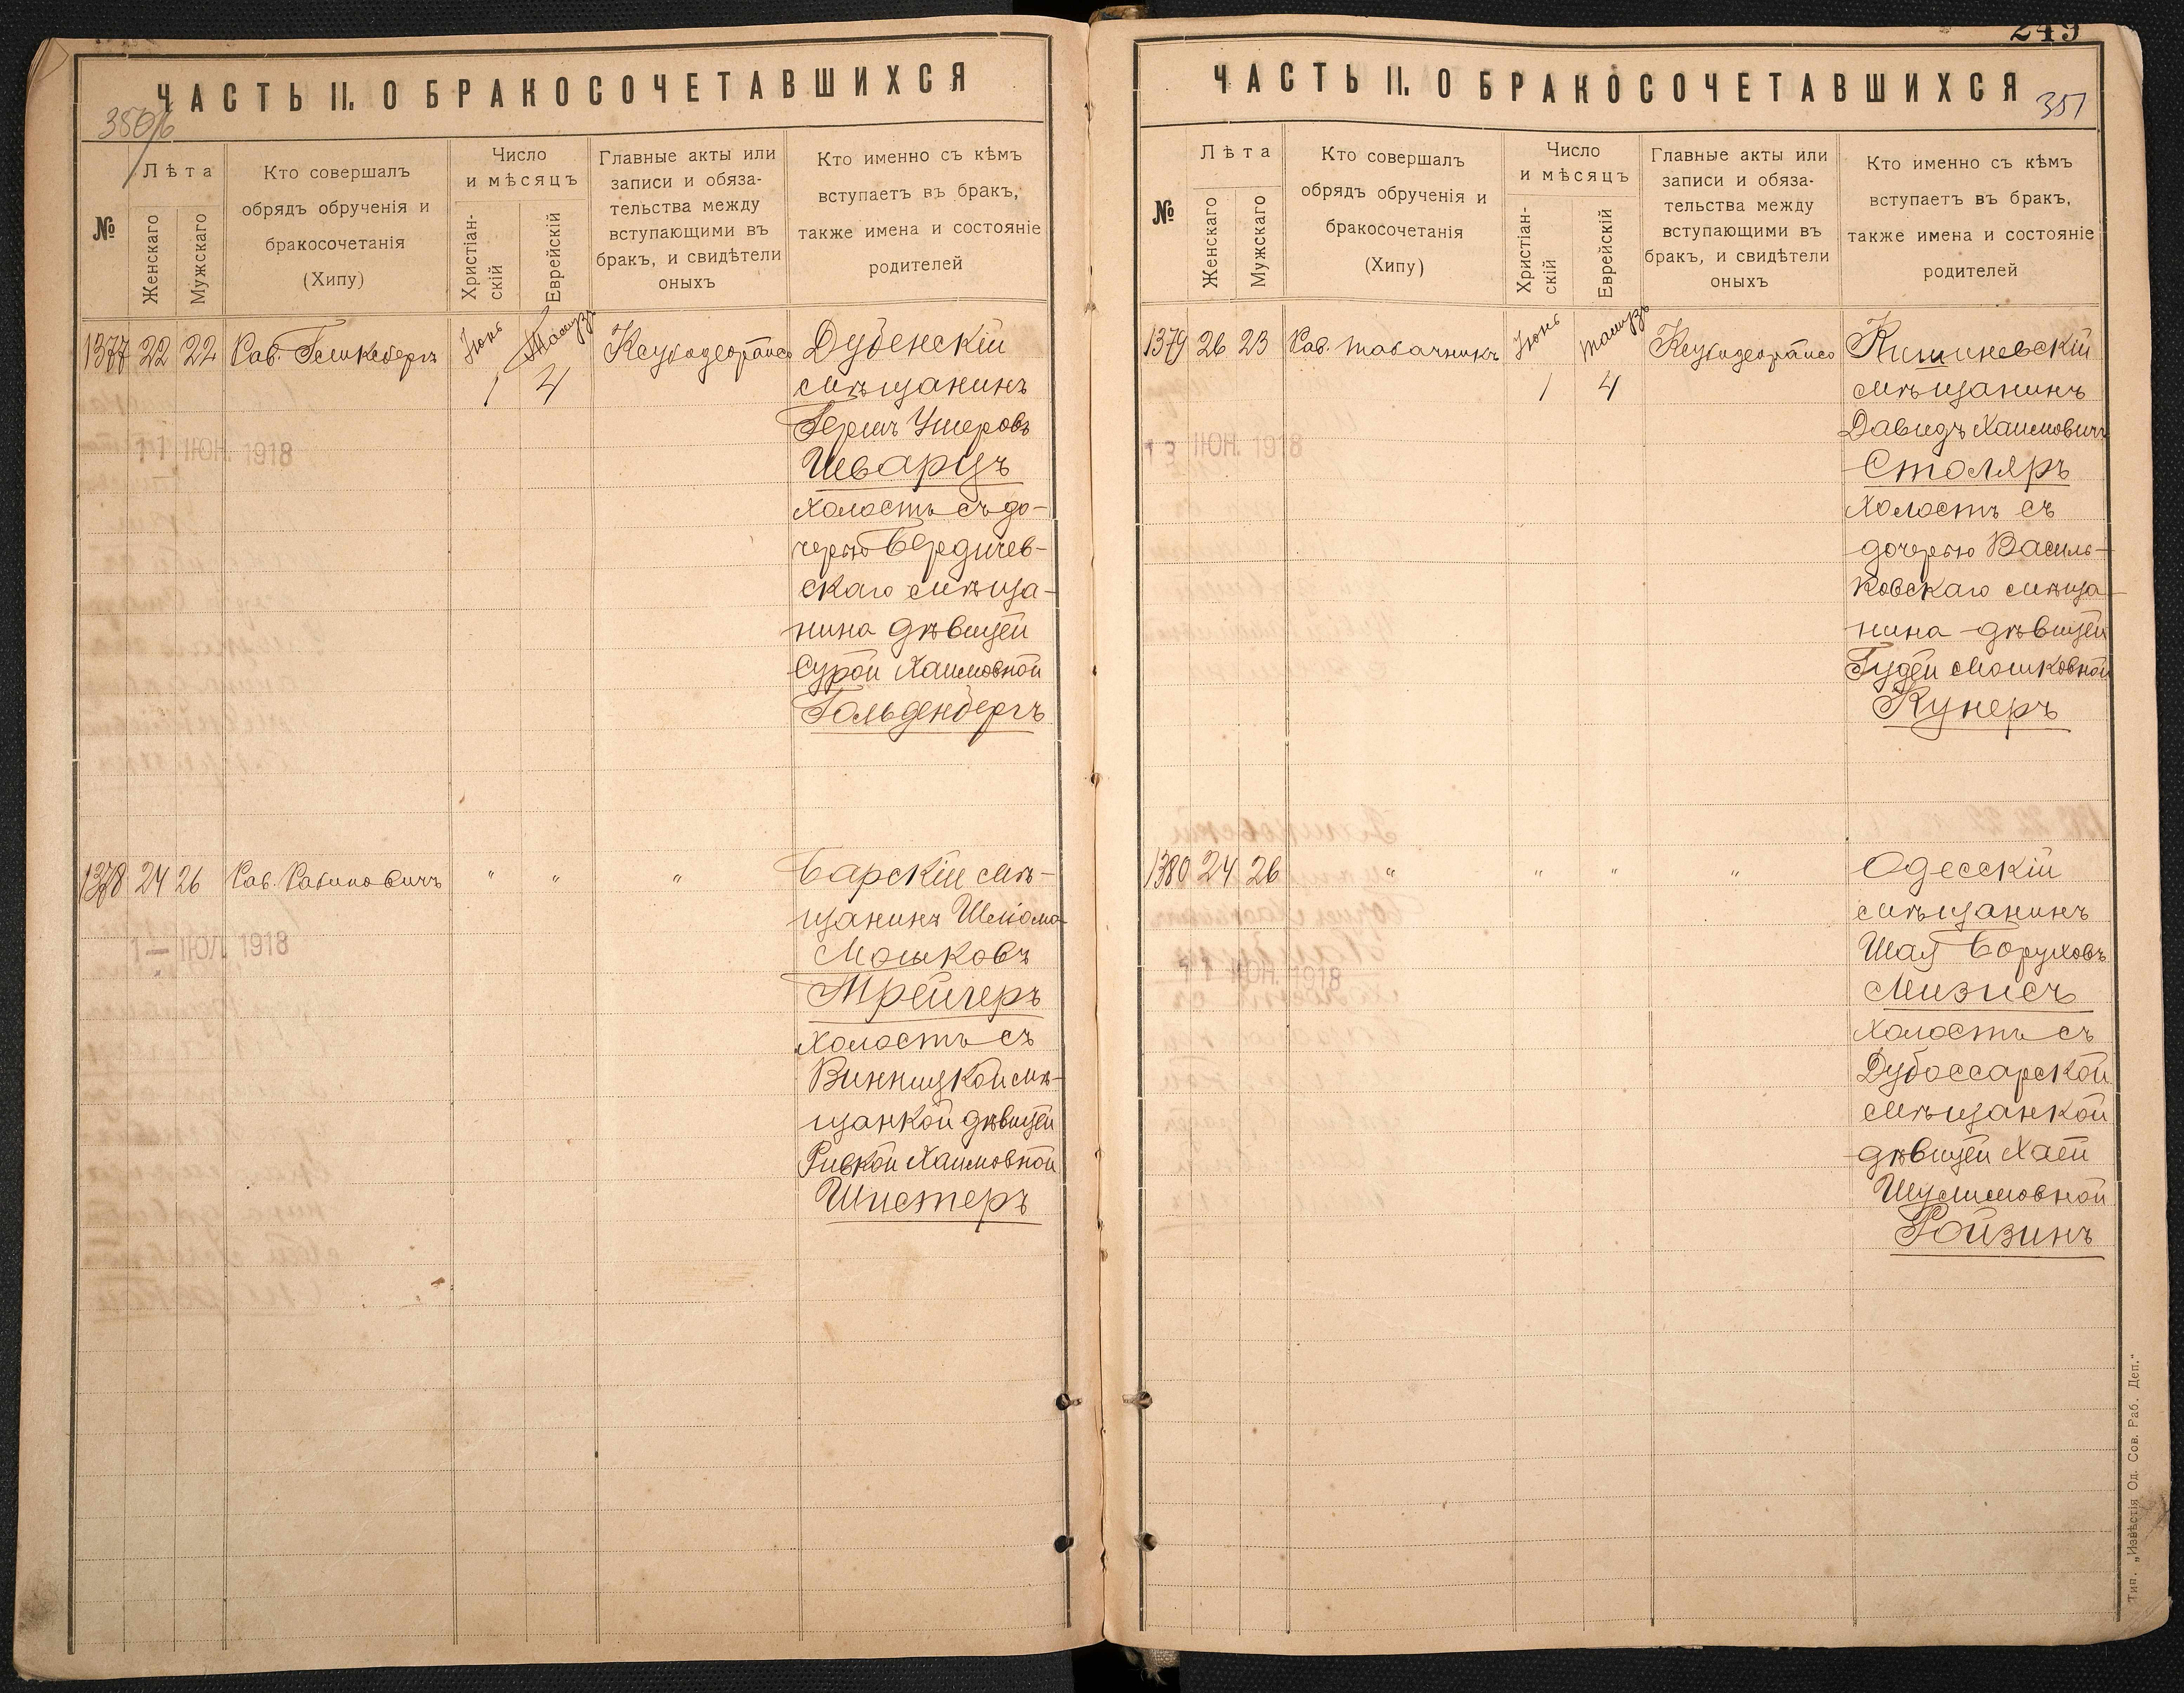 ЧАСТЬ II. О БРАКОСОЧЕТАВШИХСЯ
350/б
№
Лѣта
Женскаго
Мужскаго
Кто совершалъ
обрядъ обрученія и
бракосочетанія
(Хипу)
Число
и мѣсяцъ
Христіан-
скій
Еврейскій
Главные акты или
записи и обяза-
тельства между
вступающими въ
бракъ, и свидѣтели
оныхъ
Кто именно съ кѣмъ
вступаетъ въ бракъ,
также имена и состояніе
родителей
1377 22 22 Рав. Іюнь Тамузъ
1 4
Дубенскій
мѣщанинъ
Гершъ Ушеровъ
Шварцъ
холостъ съ до-
черью Бердичев-
скаго мѣща-
нина дѣвицей
Сурой Хаимовной
Гольденбергъ
11 ІЮН. 1918
1378 24 26 Рав. Рабиновичъ " " "
Барскій мѣ-
щанинъ Шліома
Мошковъ
Трейгеръ
холостъ съ
Винницкой мѣ-
щанкой дѣвицей
Ривкой Хаимовной
Шистеръ
1 – ІЮЛ. 1918
249
ЧАСТЬ II. О БРАКОСОЧЕТАВШИХСЯ
351
№
Лѣта
Женскаго
Мужскаго
Кто совершалъ
обрядъ обрученія и
бракосочетанія
(Хипу)
Число
и мѣсяцъ
Христіан-
скій
Еврейскій
Главные акты или
записи и обяза-
тельства между
вступающими въ
бракъ, и свидѣтели
оныхъ
Кто именно съ кѣмъ
вступаетъ въ бракъ,
также имена и состояніе
родителей
1379 26 23 Рав. Табачникъ Іюнь Тамузъ
1 4
Кишиневскій
мѣщанинъ
Давидъ Хаимовичъ
Столяръ
холостъ съ
дочерью Василь-
ковскаго мѣща-
нина дѣвицей
Гудей Мошковной
Кунеръ
ІЮН. 1918
1380 24 26 " " " "
Одесскій
мѣщанинъ
Шая Боруховъ
Мизисъ
холостъ съ
Дубоссарской
мѣщанкой
дѣвицей Хаей
Шулимовной
Ройзинъ
11 ІЮН. 1918
Тип. „Извѣстія Од. Сов. Раб. Деп.“